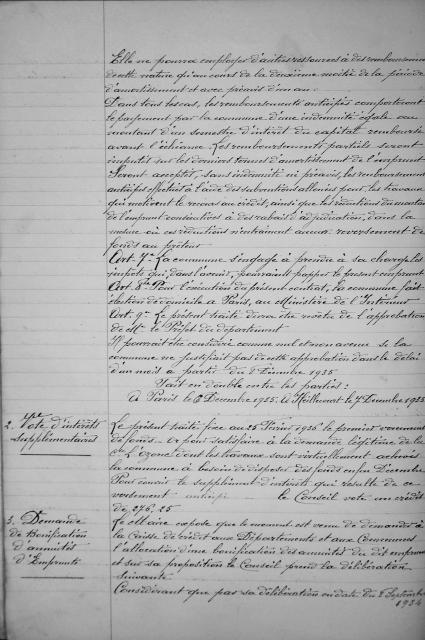 Elle ne pourra employer d'autres ressources à des remboursements
de cette nature qu'au cours de la deuxième moitié de la période
d'amortissement et avec préavis d'un an.
Dans tous les cas, les remboursements anticipés comporteront
le payement par la commune d'une indemnité égale au
montant d'un semestre d'intérêt du capital remboursé
avant l'échéance. Les remboursements partiels seront
imputés sur les derniers termes d'amortissement de l'emprunt
Seront acceptés, sans indemnité ni préavis, les remboursements
anticipés effectués à l'aide des subventions allouées pour les travaux
qui motivent le recours au crédit, ainsi que les réductions du montant
de l'emprunt consécutives à des rabais d'adjudication, dans la
mesure où ces réductions n'entraînent aucun reversement de
fonds au prêteur
Art. 7e La commune s'engage à prendre à sa charge les
impôts qui, dans l'avenir, pourraient frapper le présent emprunt
Art. 8e Pour l'exécution du présent contrat, la commune fait
élection de domicile à Paris, au Ministère de l'Intérieur
Art. 9e Le présent traité devra être revêtu de l'approbation
de Mr le Préfet du département
Il pourrait être considéré comme nul et non avenu si la
commune ne justifiait pas de cette approbation dans le délai
d'un mois à partir du 2 Décembre 1925
Fait en double entre les parties :
à Paris le 6 Décembre 1925. à le 7 Décembre 1925
2. Vote d'intérêts
supplémentaires
Le présent traité fixe au 25 Février 1926 le premier versement
de fonds. Or pour satisfaire à la demande légitime de la
Cie l'Ozone dont les travaux sont virtuellement achevés
la commune a besoin de disposer des fonds en fin Décembre
Pour couvrir le supplément d'intérêts qui résulte de ce
versement anticipé le Conseil vote un crédit
de 276. 25
3. Demande
de Bonification
d'annuités
d'Emprunts
Le Maire expose que le moment est venu de demander à
la Caisse de Crédit aux Départements et aux Communes
l'allocation d'une bonification des annuités du dit emprunt
et sur sa proposition le Conseil prend la délibération
suivante
Considérant que par sa délibération en date du 2 Septembre
1924